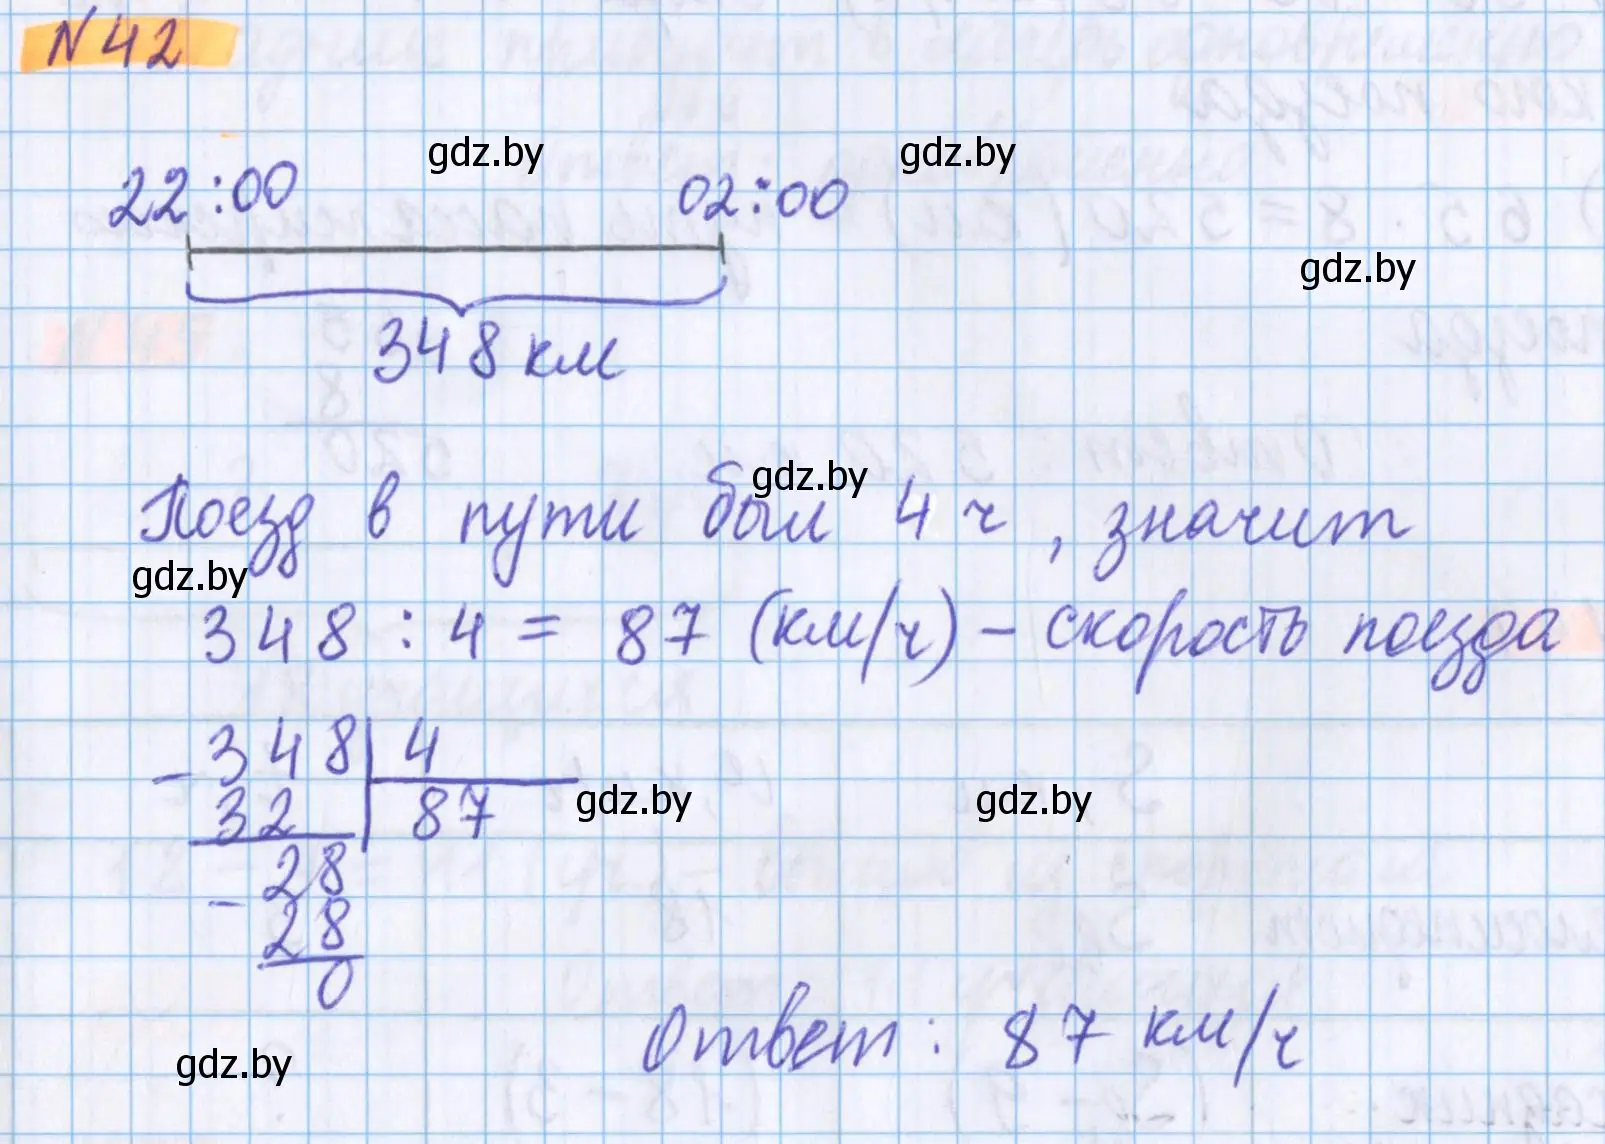 N 42
gdz.by gdz.by
22:00 02:00
gdz.by
348 км
gdz.by
Поезд в пути был 4 ч, значит
gdz.by
348 : 4 = 87 (км/ч) – скорость поезда
- 348 | 4
32 87
gdz.by gdz.by
- 28
28
0
Ответ: 87 км/ч
gdz.by